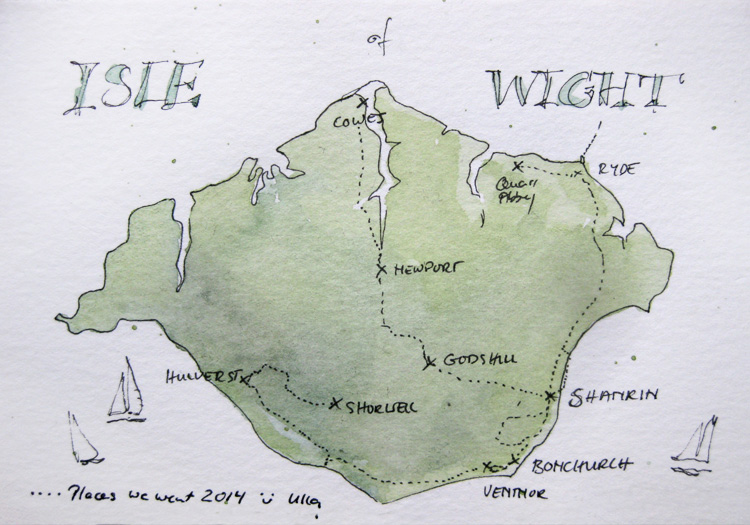 of
ISLE WIGHT
COWES
RYDE
Quarr
Abbey
NEWPORT
GODSHILL
HULVERST
SHORWELL
SHANKLIN
BONCHURCH
VENTNOR
.... Places we went 2014 Ulla